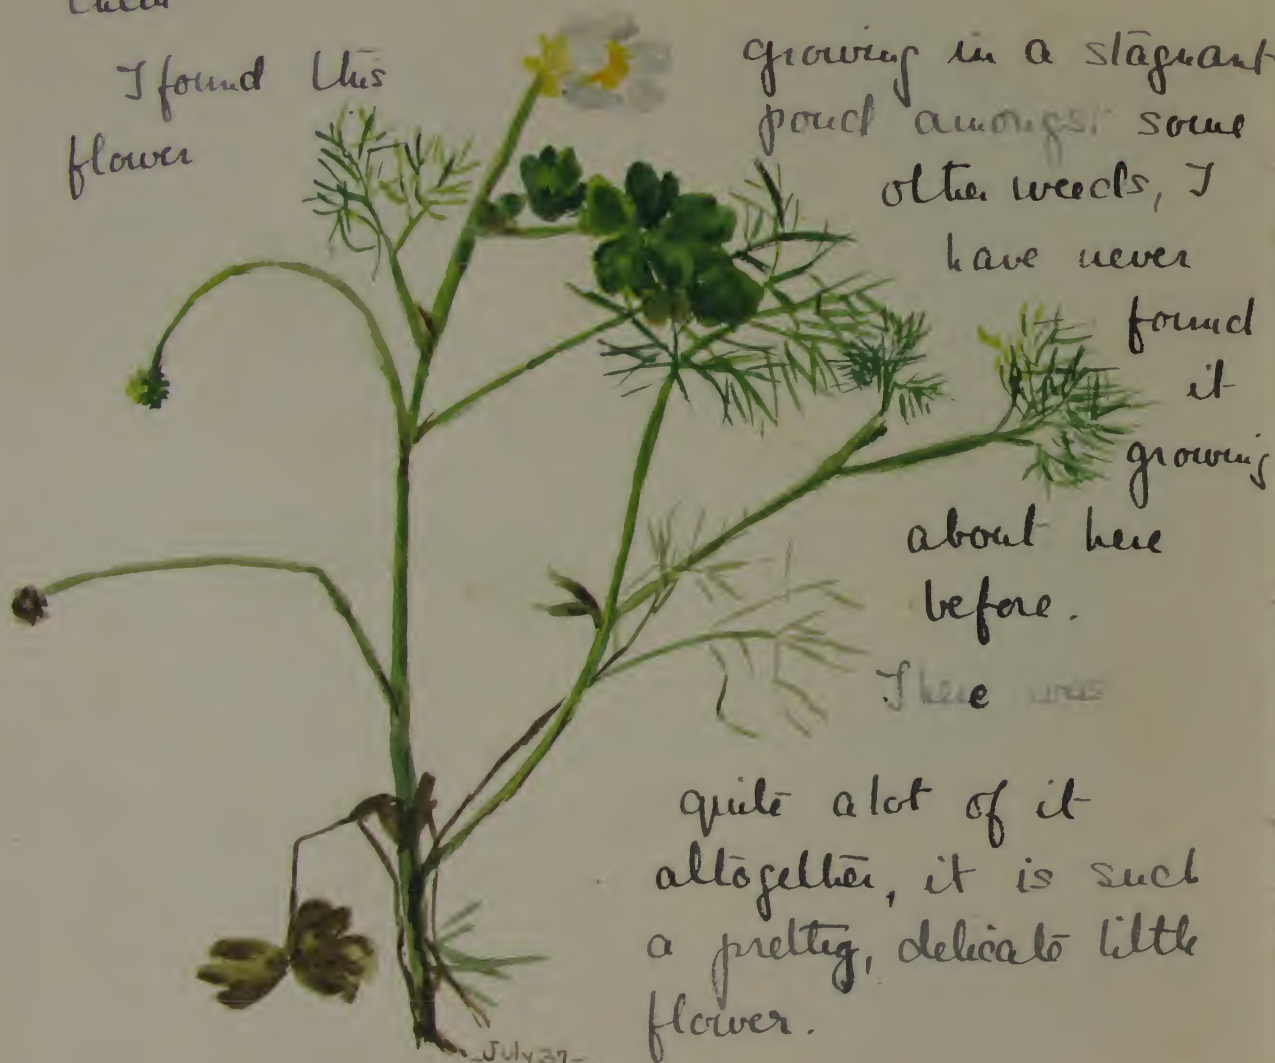 them
I found this
flower
growing in a stagnant
pond amongst some
other weeds, I
have never
found
it
growing
about here
before.
There was
quite a lot of it
altogether, it is such
a pretty, delicate little
flower.
July 37